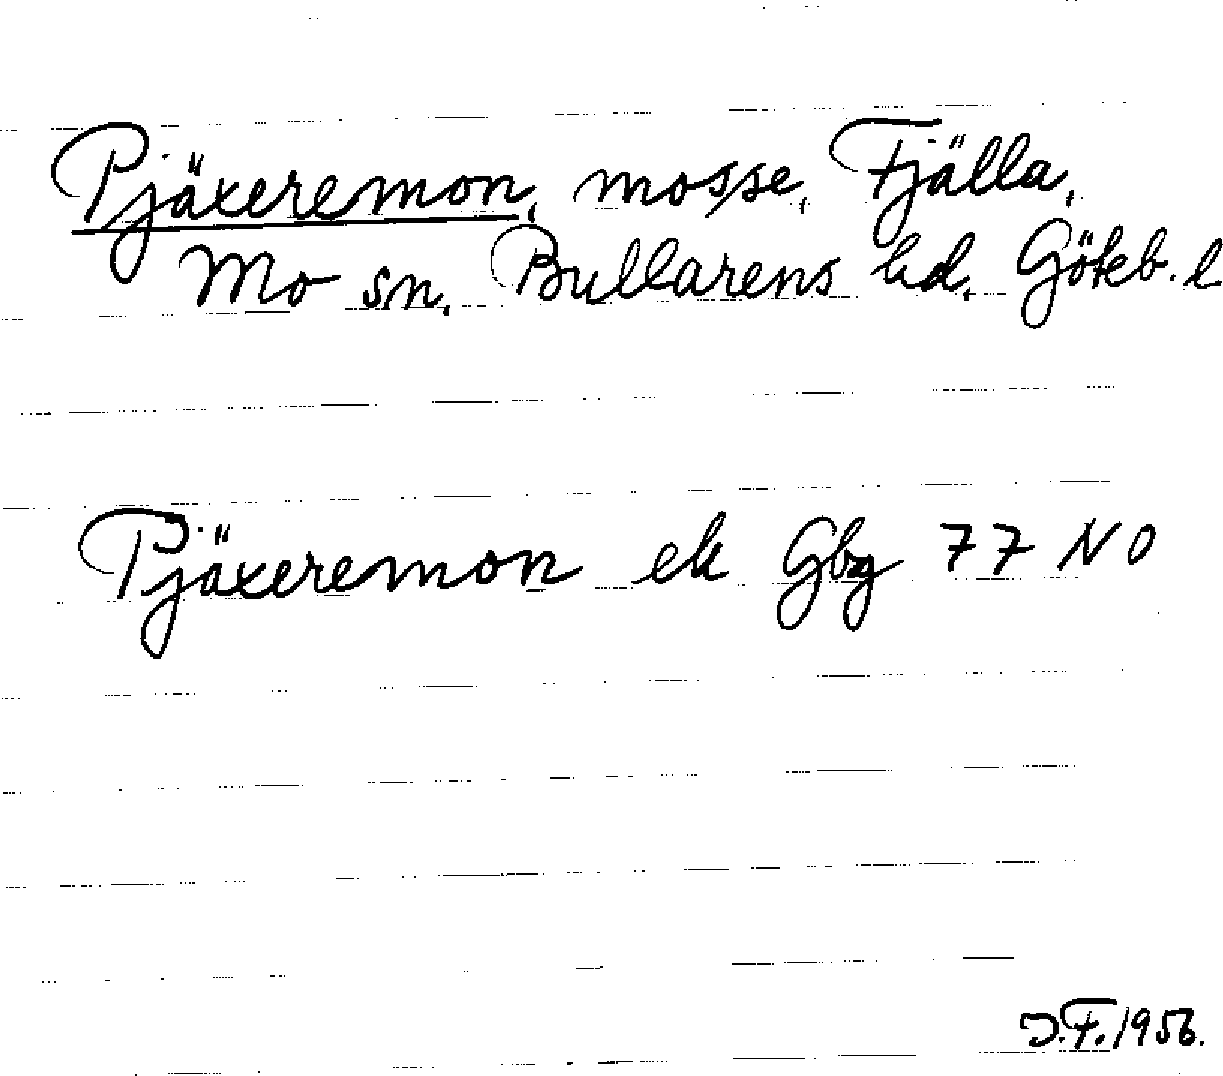 Pjäxeremon, mosse, Fjälla,
Mo sn, Bullarens hd, Göteb. l
Pjäxeremon ek Gbg 77 NO
J.F. 1956.